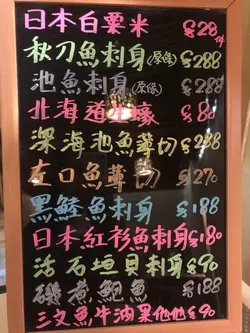 日本白粟米 $28/条
秋刀魚刺身(原條) $288
池魚刺身(原條) $288
北海道生蠔 $80
深海池魚薄切 $288
左口魚薄切 $270
黑鯥魚刺身 $190
日本紅衫魚刺身 $180
活石垣貝刺身 $90
磯煮鮑魚 $188
三文魚牛油果他他 $90